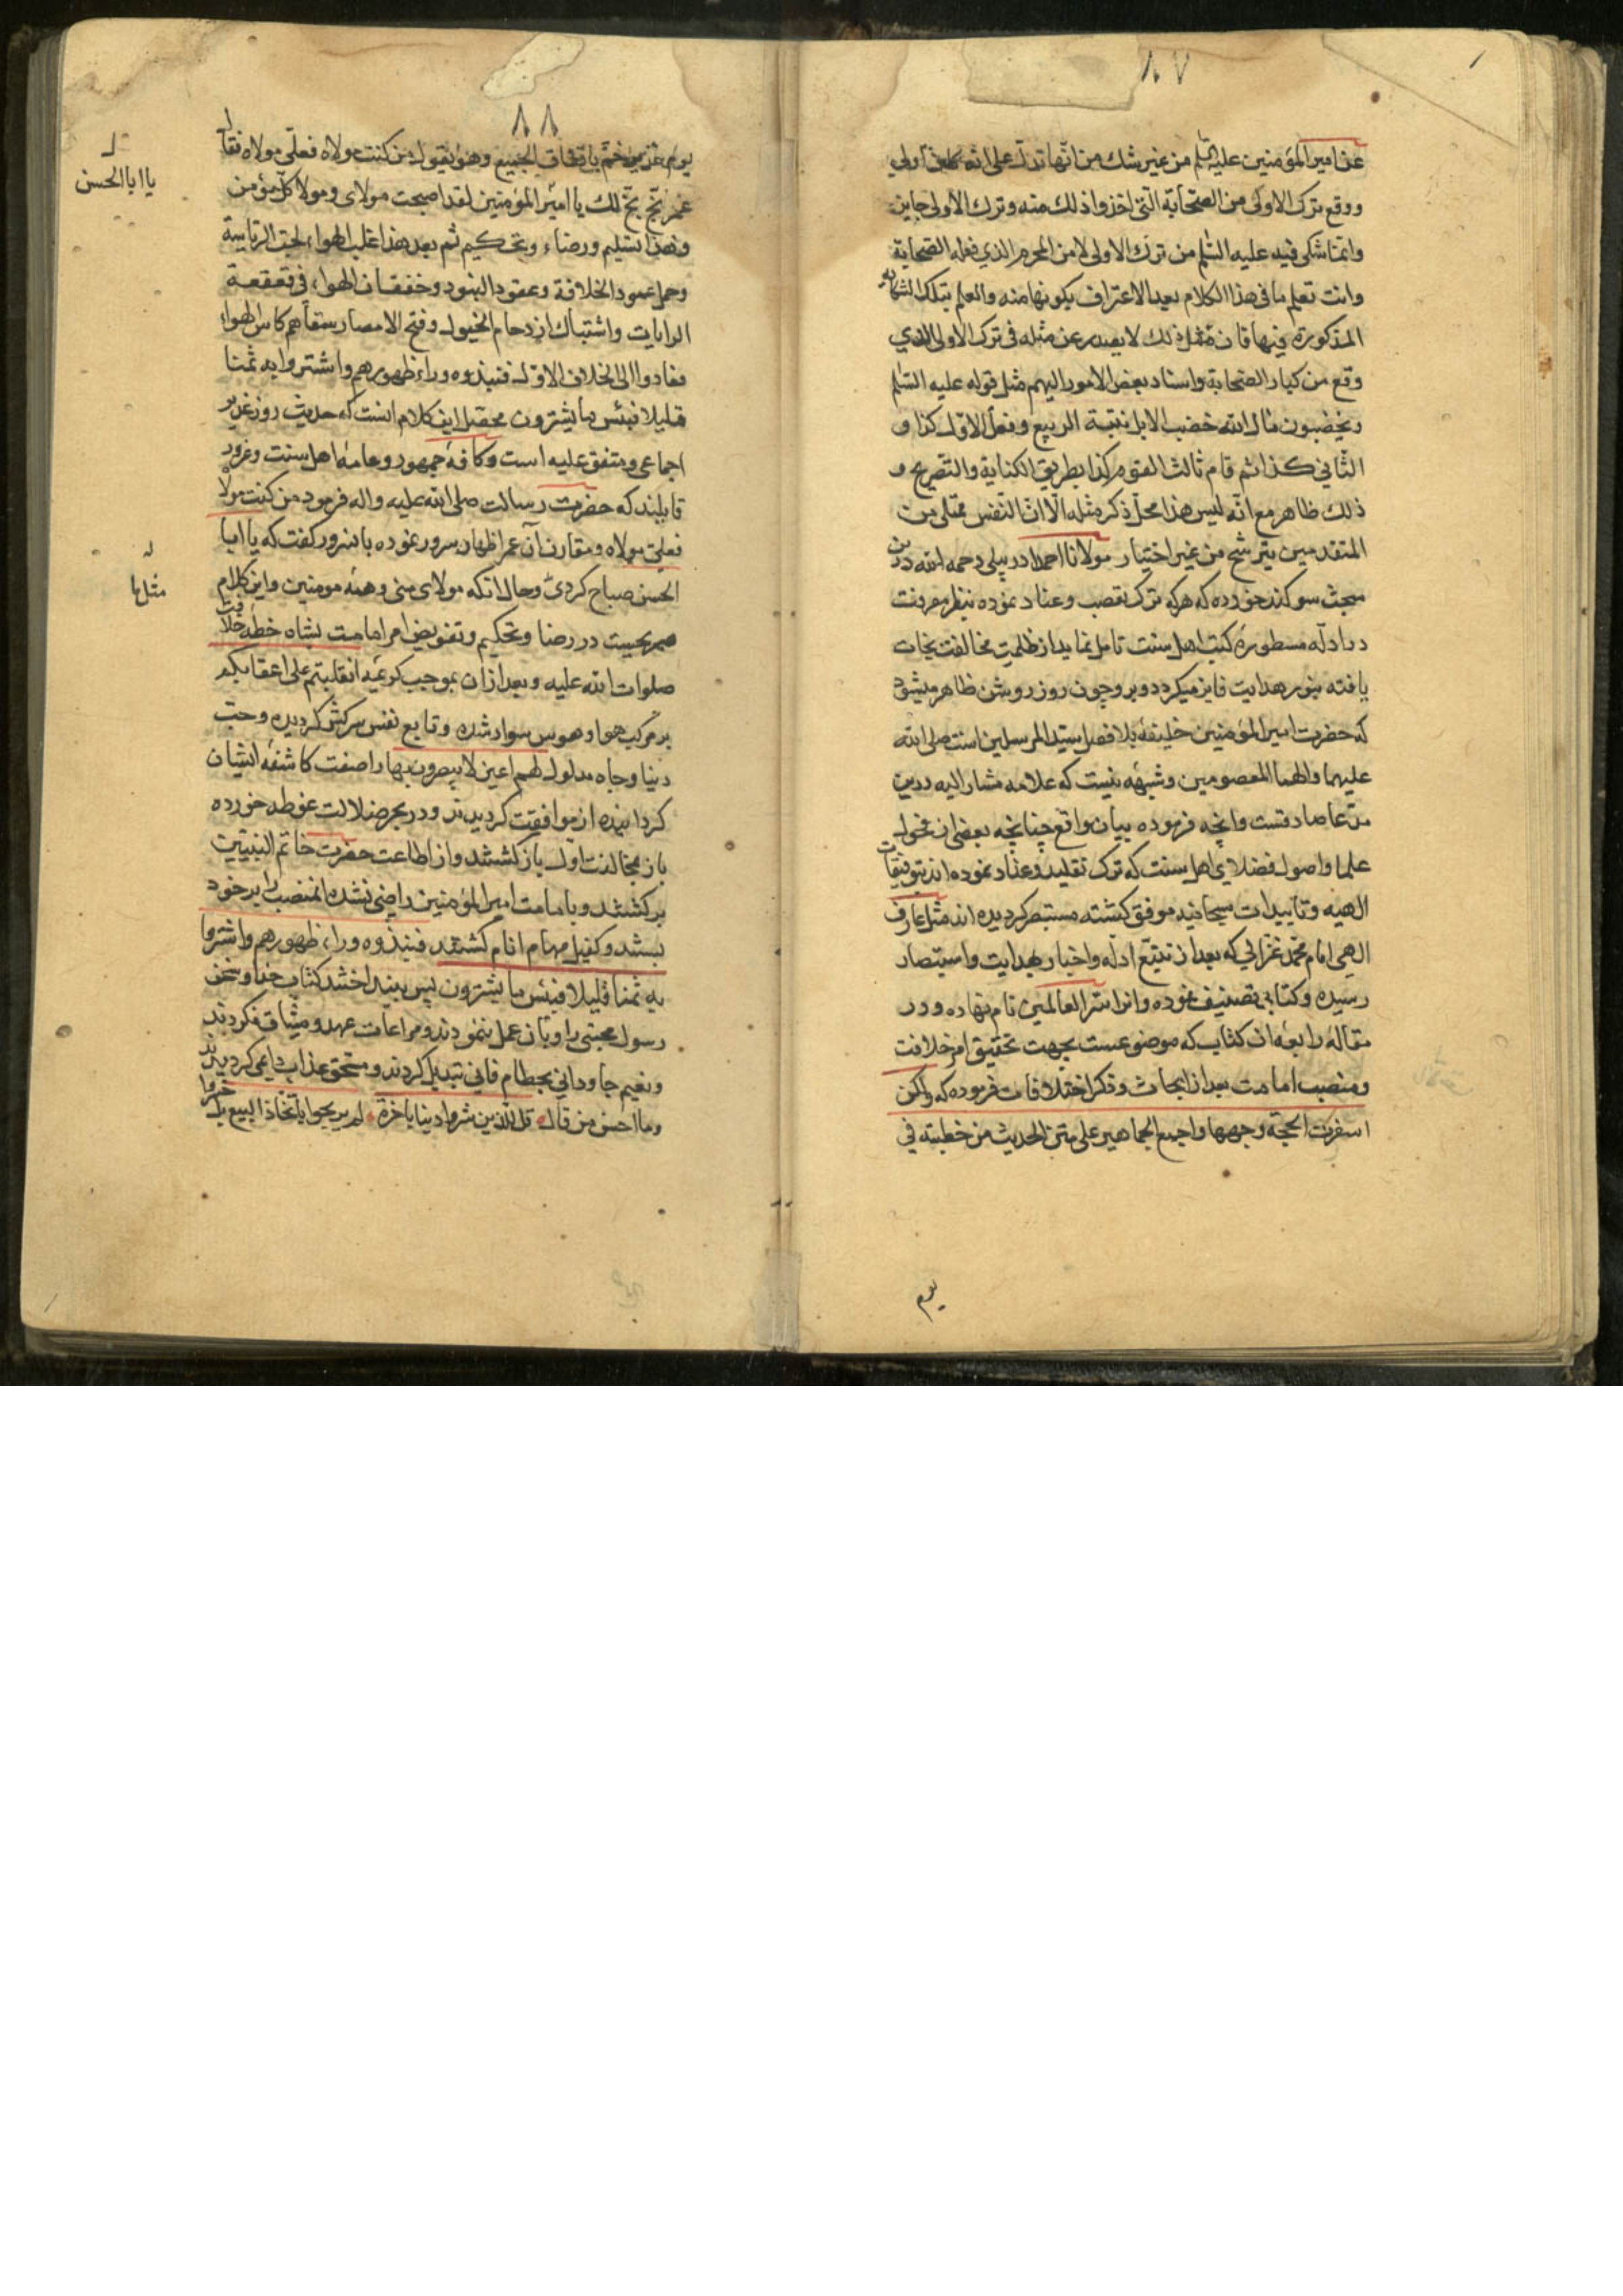 ٨٧
عن امير المؤمنين عليه السلم من غير شك من انها تدل على انه كان اولى
ووقع ترك الاولى من الصحابة التى اخذوا ذلك منه وترك الاولى جايز
وانما شكى فيه عليه السلم من ترك الاولى لا من المحرم الذي فعله الصحابة
وانت تعلم ما فى هذا الكلام بعد الاعتراف بكونها منه والعلم بتلك الشكاية
المذكورة فيها فان مثل ذلك لا يصدر عن مثله فى ترك الاولى الذي
وقع من كبار الصحابة واسناد بعض الامور اليهم مثل قوله عليه السلم
ويخضمون مال الله خضم الابل نبتة الربيع وفعل الاول كذا و
الثاني كذا ثم قام ثالث القوم كذا بطريق الكناية والتصريح و
ذلك ظاهر مع انه ليس هذا محل ذكر مثله الا ان النفس ممتلى من
المتقدمين يترشح من غير اختيار مولانا احمد اردبيلى رحمه الله درين
مبحث سوكند خورده كه هركه ترك تعصب وعناد نموده بنظر معرفت
در ادله مسطوره كتب اهل سنت تامل نمايد از ظلمت مخالفت نجات
يافته بنور هدايت فايز ميكردد وبر وچون روز روشن ظاهر ميشود
كه حضرت امير المؤمنين خليفه بلا فصل سيد المرسلين است صلى الله
عليهما والهما المعصومين وشبهه نيست كه علامه مشار اليه درين
مدعا صادقست وانچه فرموده بيان واقع چنانچه بعضى از فحول
علما واصول فضلاي اهل سنت كه ترك تقليد وعناد نموده اند بتوفيقات
الهيه وتاييدات سبحانيه موفق كشته مستبصر كرديده اند مثل عارف
الهي امام محمد غزالي كه بعد از تتبع ادله واخبار بهدايت واستبصار
رسيده وكتابى تصنيف نموده وانرا سر العالمين نام نهاده ودر
مقالهٔ رابعه ان كتاب كه موضوعست بجهت تحقيق امر خلافت
ومنصب امامت بعد از ابحاث وذكر اختلافات فرموده كه ولكن
اسفرت الحجة وجهها واجمع الجماهير على متن الحديث من خطبته في
يوم
٨٨
يوم غدير خم باتفاق الجميع وهو يقول من كنت مولاه فعلى مولاه فقال
عمر بخ بخ لك يا امير المؤمنين لقد اصبحت مولاى ومولا كل مؤمن
يا ابا الحسن
وهذا تسليم ورضاء وتحكيم ثم بعد هذا غلب الهواء لحب الرياسة
وحمل عمود الخلافة وعقود البنود وخفقان الهواء فى قعقعة
الرايات واشتباك ازدحام الخيول وفتح الامصار سقاهم كاس الهواء
فعادوا الى الخلاف الاول فنبذوه وراء ظهورهم واشتروا به ثمنا
قليلا فبئس ما يشترون محصل اين كلام انست كه حديث روز غدير
اجماعى ومتفق عليه است وكافهٔ جمهور وعامهٔ اهل سنت
قايلند كه حضرت رسالت صلى الله عليه واله فرمود من كنت مولاه
فعلى مولاه ومقارن آن عمر اظهار سرور نموده بانسرور كفت كه يا ابا
الحسن صباح كردى وحال انكه مولاى منى وهمه مومنين واين كلام
مثلها
صريحيست در رضا وتحكيم وتفويض امر امامت بشاه خطه خلافت
صلوات الله عليه وبعد ازان بموجب كريمه انقلبتم على اعقابكم
بر مركب هوا وهوس سوار شده وتابع نفس سركش كرديده وحب
دنيا وجاه مدلول لهم اعين لا يبصرون بها را صفت كاشفه ايشان
كردانيده از موافقت كرديدند ودر بحر ضلالت غوطه خورده
باز بمخالفت اول باز كشتند واز اطاعت حضرت خاتم النبيين
بركشتند وبامامت امير المؤمنين راضى نشده انمنصب را بر خود
بستند وكفيل مهام انام كشتند فنبذوه وراء ظهورهم واشتروا
به ثمنا قليلا فبئس ما يشترون پس بينداختند كتاب خدا وسخن
رسول مجتبى را وبان عمل ننمودند ومراعات عهد وميثاق نكردند
ونعيم جاودانى بحطام فانى تبديل كردند ومستحق عذاب دايمى كرديدند
وما احسن من قال قل للذين شروا دينا باخرة لم يربحوا باتخاذ البيع بل خسروا